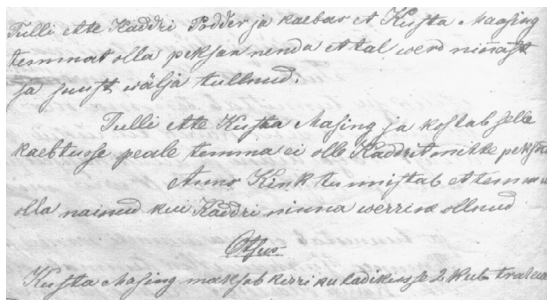 Tulli ette Kaddri Podder ja kaebas et Kusta Maasing
temmat olla peksan nenda et tal werd ninnast
ja suust wälja tullnud.
Tulli ette Kusta Masing ja kostab selle
kaebtusse peale temma ei olle Kaddrit mitte peksnu
Anno Kink tunnistab et temma
olla nainud kui Kaddri ninna werrine ollnud
Otsus
Kusta Masing maksab kirriku ladikusse 2 Rub trahwi